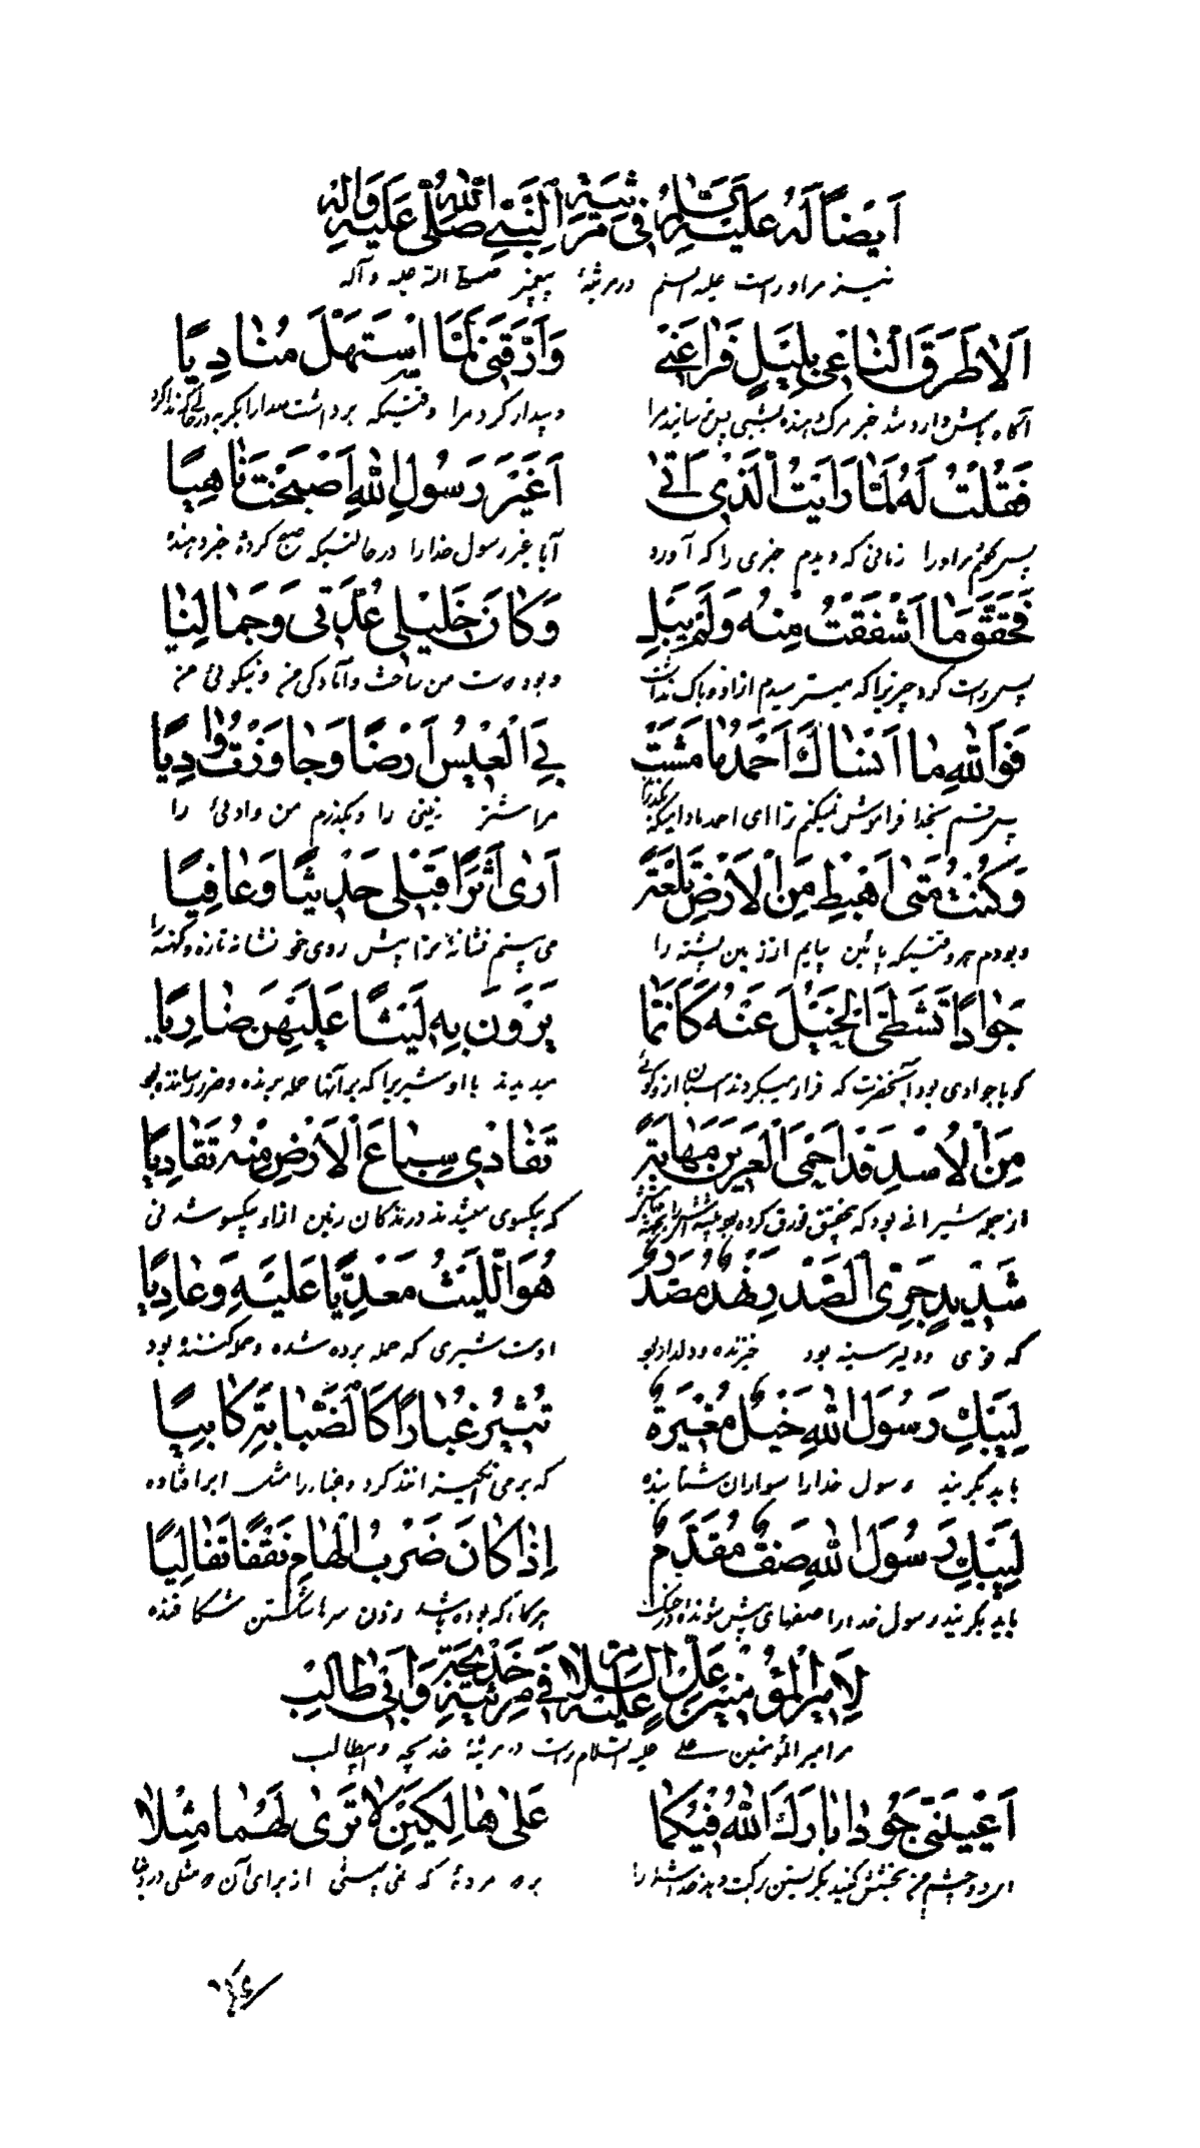 اَيْضًا لَهُ عَلَيْهِ السَّلَامُ فِي مَرْثِيَةِ النَّبِيِّ صَلَّى اللهُ عَلَيْهِ وَالِهِ
نیز مر او راست علیه السلم در مرثیهٔ پیغمبر صلی الله علیه و آله
اَلَا طَرَقَ النَّاعِي بِلَيْلٍ فَرَاعَنِي وَاَرَّقَنِي لَمَّا اسْتَهَلَّ مُنَادِيًا
آگاه باش وارد شد خبر مرگ دهنده بشبی پس ترسانید مرا و بیدار کرد مرا وقتیکه برداشت صدا را بگریه
فَقُلْتُ لَهُ لَمَّا رَاَيْتُ الَّذِي اَتٰى اَغَيْرَ رَسُولِ اللهِ اَصْبَحْتَ نَاهِيًا
پس گفتم مر او را زمانی که دیدم خبری را که آورد آیا غیر رسول خدا را در حالتیکه صبح کردهٔ خبر دهندهٔ
فَحَقَّقَ مَا اَشْفَقْتُ مِنْهُ وَلَمْ يُبَلِ وَكَانَ خَلِيْلِي عُدَّتِي وَجَمَالِنَا
پس راست کرد چیزیرا که میترسیدم از او و باک نداشت و بود دوست من ساخت و آمادگی من و نیکوئی من
فَوَاللهِ مَا اَنْسَاكَ اَحْمَدُ مَا مَشَتْ بِيَ الْعِيْسُ اَرْضًا وَجَاوَزْتُ وَادِيًا
پس قسم بخدا فراموش نمیکنم ترا ای احمد مادامیکه بگذرد مرا شتر زمینی را و بگذرم من وادئی را
وَكُنْتُ مَتٰى اَهْبِطْ مِنَ الْاَرْضِ تَلْعَةً اَرٰى اَثَرًا قَبْلِي حَدِيْثًا وَعَافِيًا
و بودم هر وقتیکه پائین بیایم از زمین پشته را می بینم نشانهٔ مرا پیش روی خود نشانه تازه و کهنه را
جَوَادًا تَشَظَّى الْخَيْلُ عَنْهُ كَاَنَّمَا يَرَوْنَ بِهِ لَيْثًا عَلَيْهِنَّ ضَارِيًا
جوادی بود آنحضرت که فرار میکردند اسبان از او گوئی میدیدند با او شیریرا که بر آنها حمله برنده و ضرر رساننده بود
مِنَ الْاُسْدِ قَدْ اَحْمَى الْعَرِيْنَ مَهَابَةً تَفَادٰى سِبَاعُ الْاَرْضِ مِنْهُ تَفَادِيًا
از جمله شیرانی بود که بتحقیق قورق کرده بود بیشه که بیکسوی میشدند درندگان زمین از او بیکسو شدنی
شَدِيْدٍ جَرِيِّ الصَّدْرِ نَهْدٌ مُصَدَّرٌ هُوَ اللَّيْثُ مَعْدِيًّا عَلَيْهِ وَعَادِيًا
که قوی و دلیر سینه بود خیزنده و دلدار بود اوست شیری که حمله برده شده و حمله کنندهٔ بود
لِيَبْكِ رَسُولَ اللهِ خَيْلٌ مُغِيْرَةٌ تُثِيْرُ غُبَارًا كَالضَّبَابَةِ كَابِيًا
باید بگریند رسول خدا را سواران شتابنده که برمی انگیزانند گرد و غبار را مثل ابر افتاده
لِيَبْكِ رَسُولَ اللهِ صَفٌّ مُقَدَّمٌ اِذَا كَانَ ضَرْبُ الْهَامِ نَقْفًا تَفَالِيًا
باید بگریند رسول خدا را صفهای پیش شونده در جنگ هرگاه که بوده باشد زدن سرها شکستن شکافنده
لِاَمِيْرِ الْمُؤْمِنِيْنَ عَلِيٍّ عَلَيْهِ السَّلَامُ فِي مَرْثِيَةِ خَدِيْجَةَ وَاَبِي طَالِبٍ
مر امیر المؤمنین علی علیه السلام راست در مرثیهٔ خدیجه و ابیطالب
اَعَيْنَيَّ جُوْدَا بَارَكَ اللهُ فِيْكُمَا عَلٰى هَالِكَيْنِ لَا تَرٰى لَهُمَا مِثْلًا
ای دو چشم من بخشش کنید بگریستن برکت دهد خدا شما را بر دو مردهٔ که نمی بینی از برای آن دو مثلی در دنیا